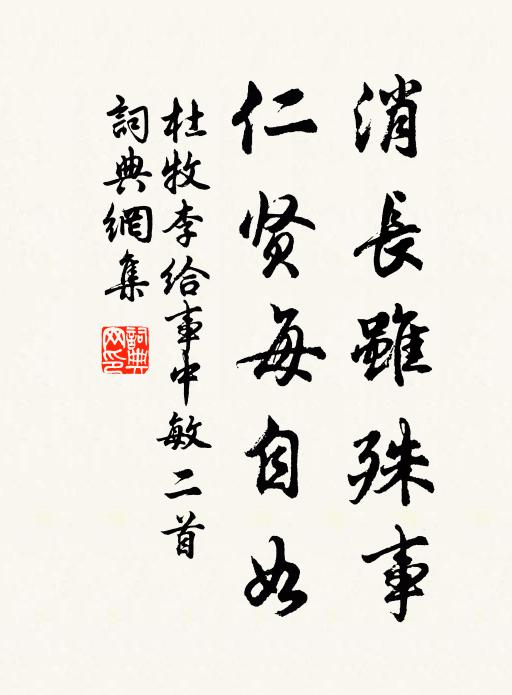 消長雖殊事
仁贤每自如
杜牧李给事中敏二首
詞典網集
詞典网印